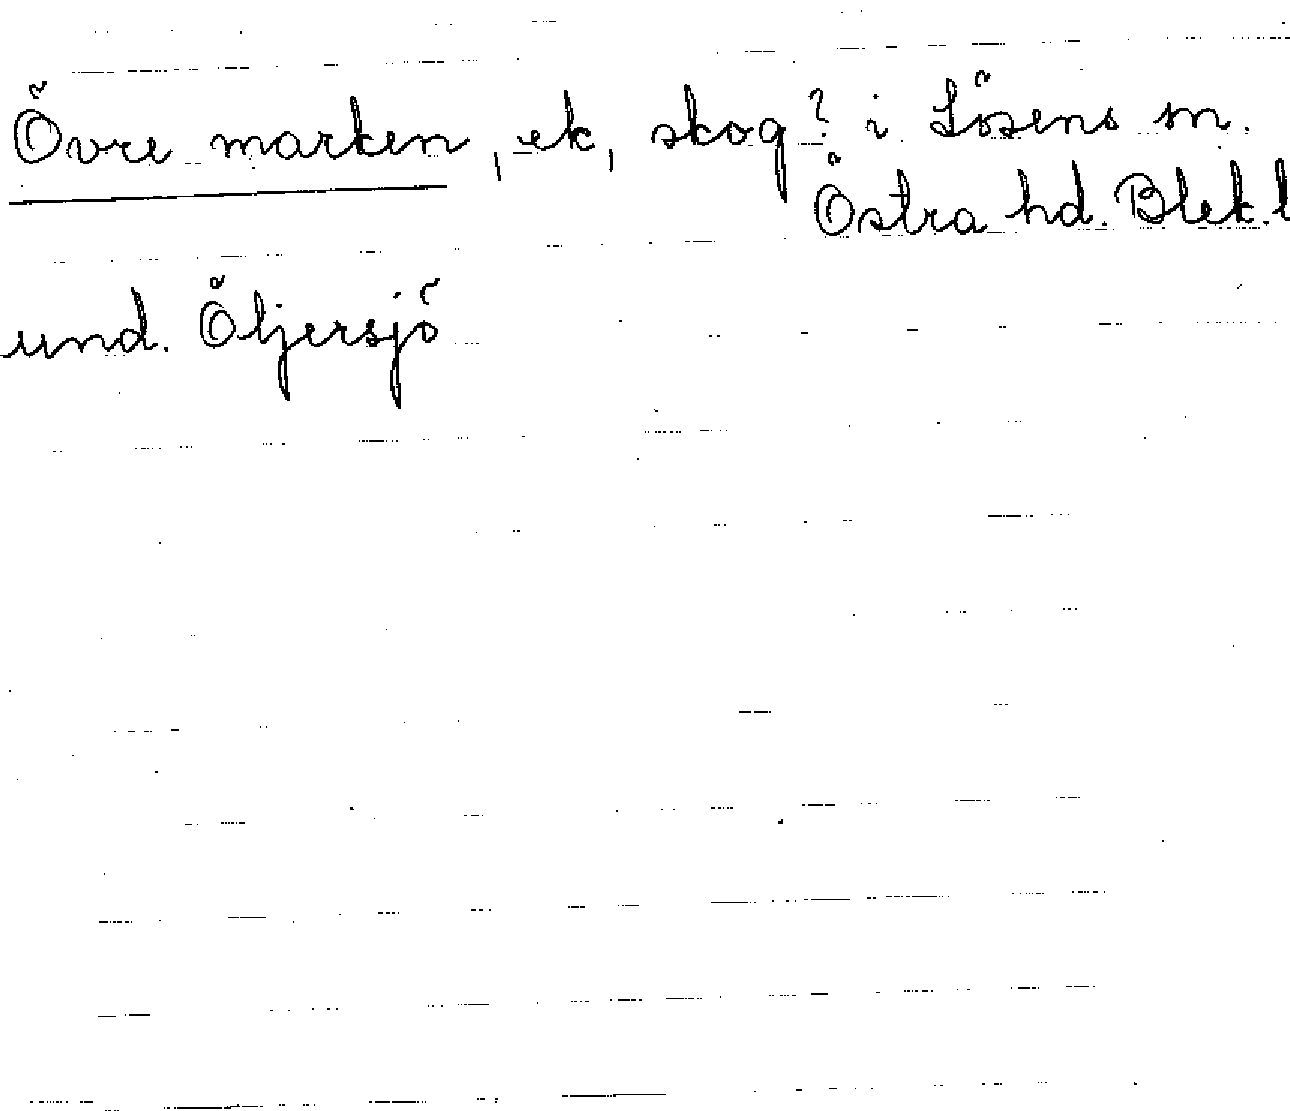 Övre marken, ek, skog? i Lösens sn.
Östra hd. Blek.l
und. Öljersjö